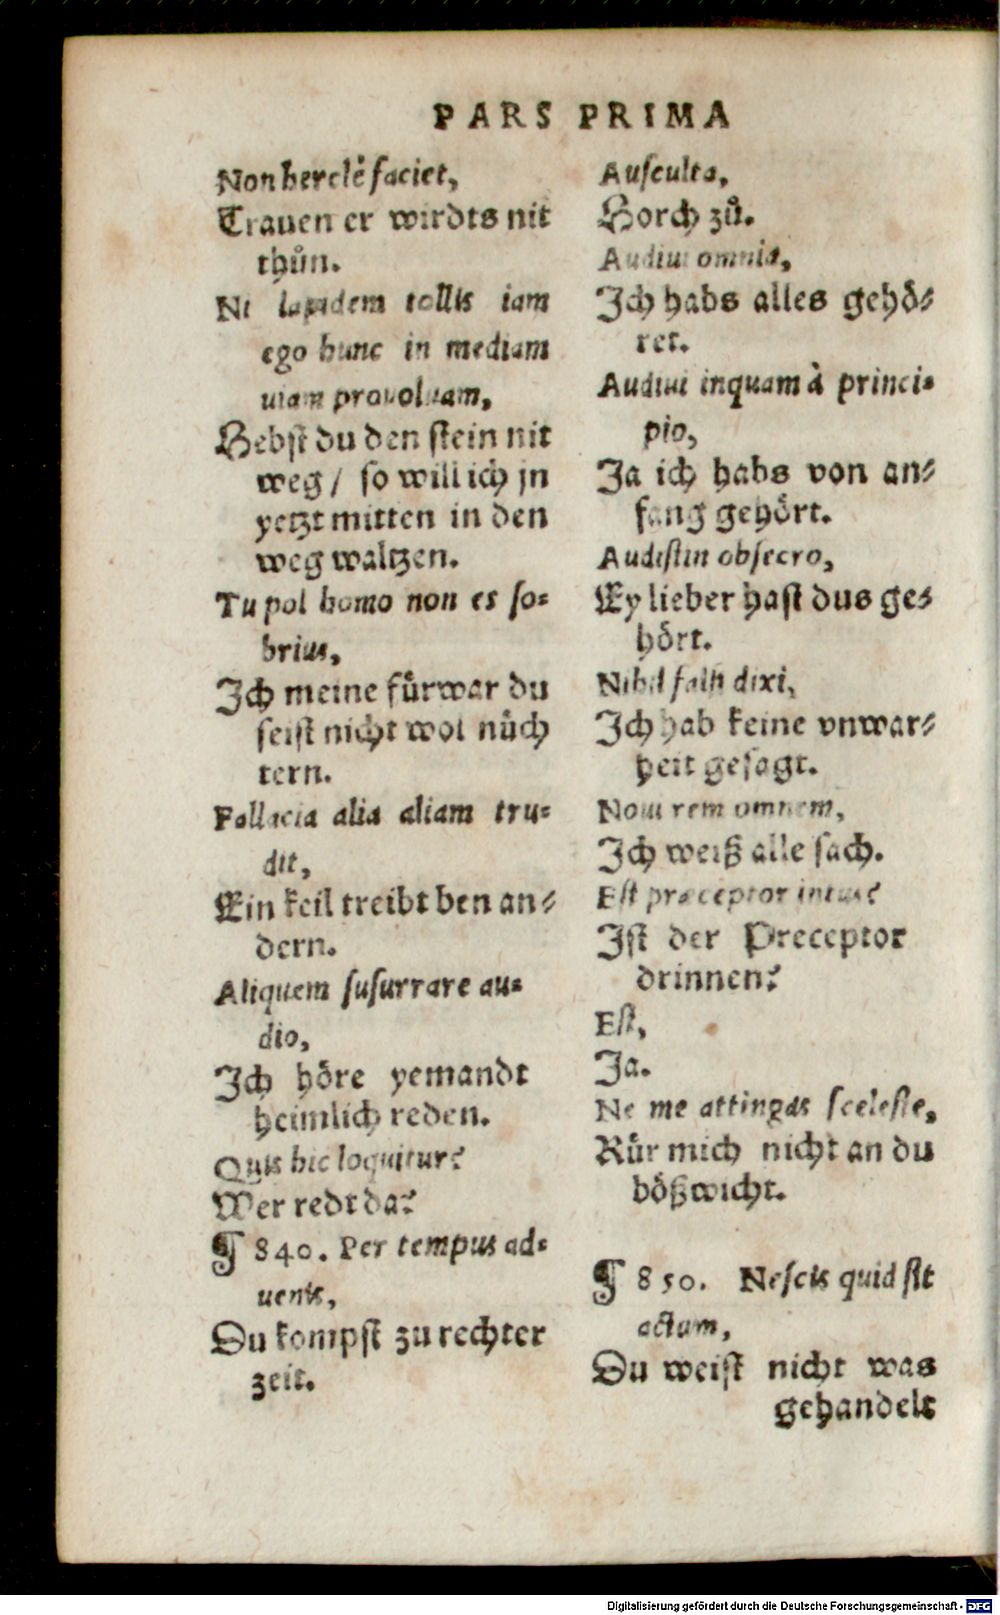 PARS PRIMA
Non herclè faciet,
Trauen er wirdts nit
thůn.
Ni lapidem tollis iam
ego hunc in mediam
uiam prouoluam,
Hebst du den stein nit
weg / so will ich jn
yetzt mitten in den
weg waltzen.
Tu pol homo non es so-
brius,
Ich meine fürwar du
seist nicht wol nüch
tern.
Fallacia alia aliam tru-
dit,
Ein keil treibt ben an-
dern.
Aliquem susurrare au-
dio,
Ich höre yemandt
heimlich reden.
Quis hic loquitur?
Wer redt da?
¶ 840. Per tempus ad-
uenis,
Du kompst zu rechter
zeit.
Ausculta,
Horch zů.
Audiui omnia,
Ich habs alles gehö-
ret.
Audiui inquam à princi-
pio,
Ja ich habs von an-
fang gehört.
Audistin obsecro,
Ey lieber hast dus ge-
hört.
Nihil falsi dixi,
Ich hab keine vnwar-
heit gesagt.
Noui rem omnem,
Ich weiß alle sach.
Est præceptor intus?
Ist der Preceptor
drinnen?
Est,
Ja.
Ne me attingas sceleste,
Rür mich nicht an du
bößwicht.
¶ 850. Nescis quid sit
actum,
Du weist nicht was
gehandelt
Digitalisierung gefördert durch die Deutsche Forschungsgemeinschaft - DFG